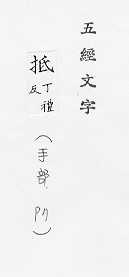 五經文字
抵丁禮反
(手部, P7)